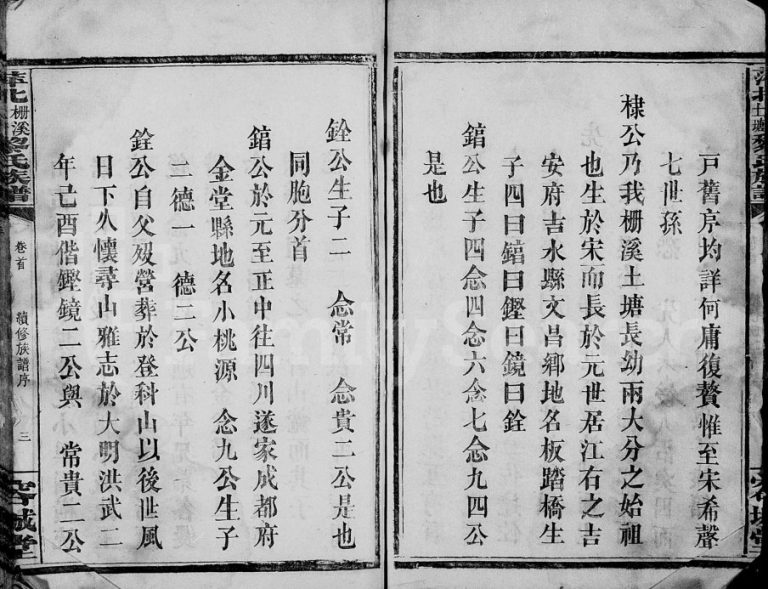 戸舊序均詳何庸復贅惟至宋希聲
七世孫
棣公乃我栅溪土塘長幼兩大分之始祖
也生於宋而長於元世居江右之吉
安府吉水縣文昌鄉地名板踏橋生
子四曰錇曰鏗曰鏡曰銓
錇公生子四念四念六念七念九四公
是也
銓公生子二 念常 念貴二公是也
同胞分首
錇公於元至正中往四川遂家成都府
金堂縣地名小桃源 念九公生子
二德一 德二公
銓公自父歿營葬於登科山以後世風
日下久懷尋山雅志於大明洪武二
年己酉偕鏗鏡二公與 常貴二公
萍北栅溪黎氏族譜
卷首 續修族譜序 三